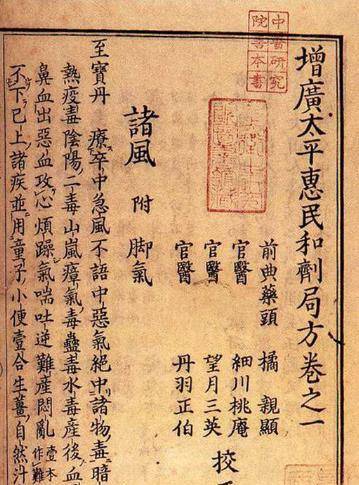 中醫研究
院善本書
增廣太平惠民和劑局方卷之一
前典藥頭 橘 親顯
官醫 細川桃庵
官醫 望月三英
官醫 丹羽正伯
校
諸風 附 脚氣
至寶丹 療卒中急風不語中惡氣絕中諸物毒暗
熱疫毒陰陽二毒山嵐瘴氣毒蠱毒水毒産後血
鼻血出惡血攻心煩躁氣喘吐逆難産悶亂壹本作難
不下已上諸疾並用童子小便壹合生薑自然汁